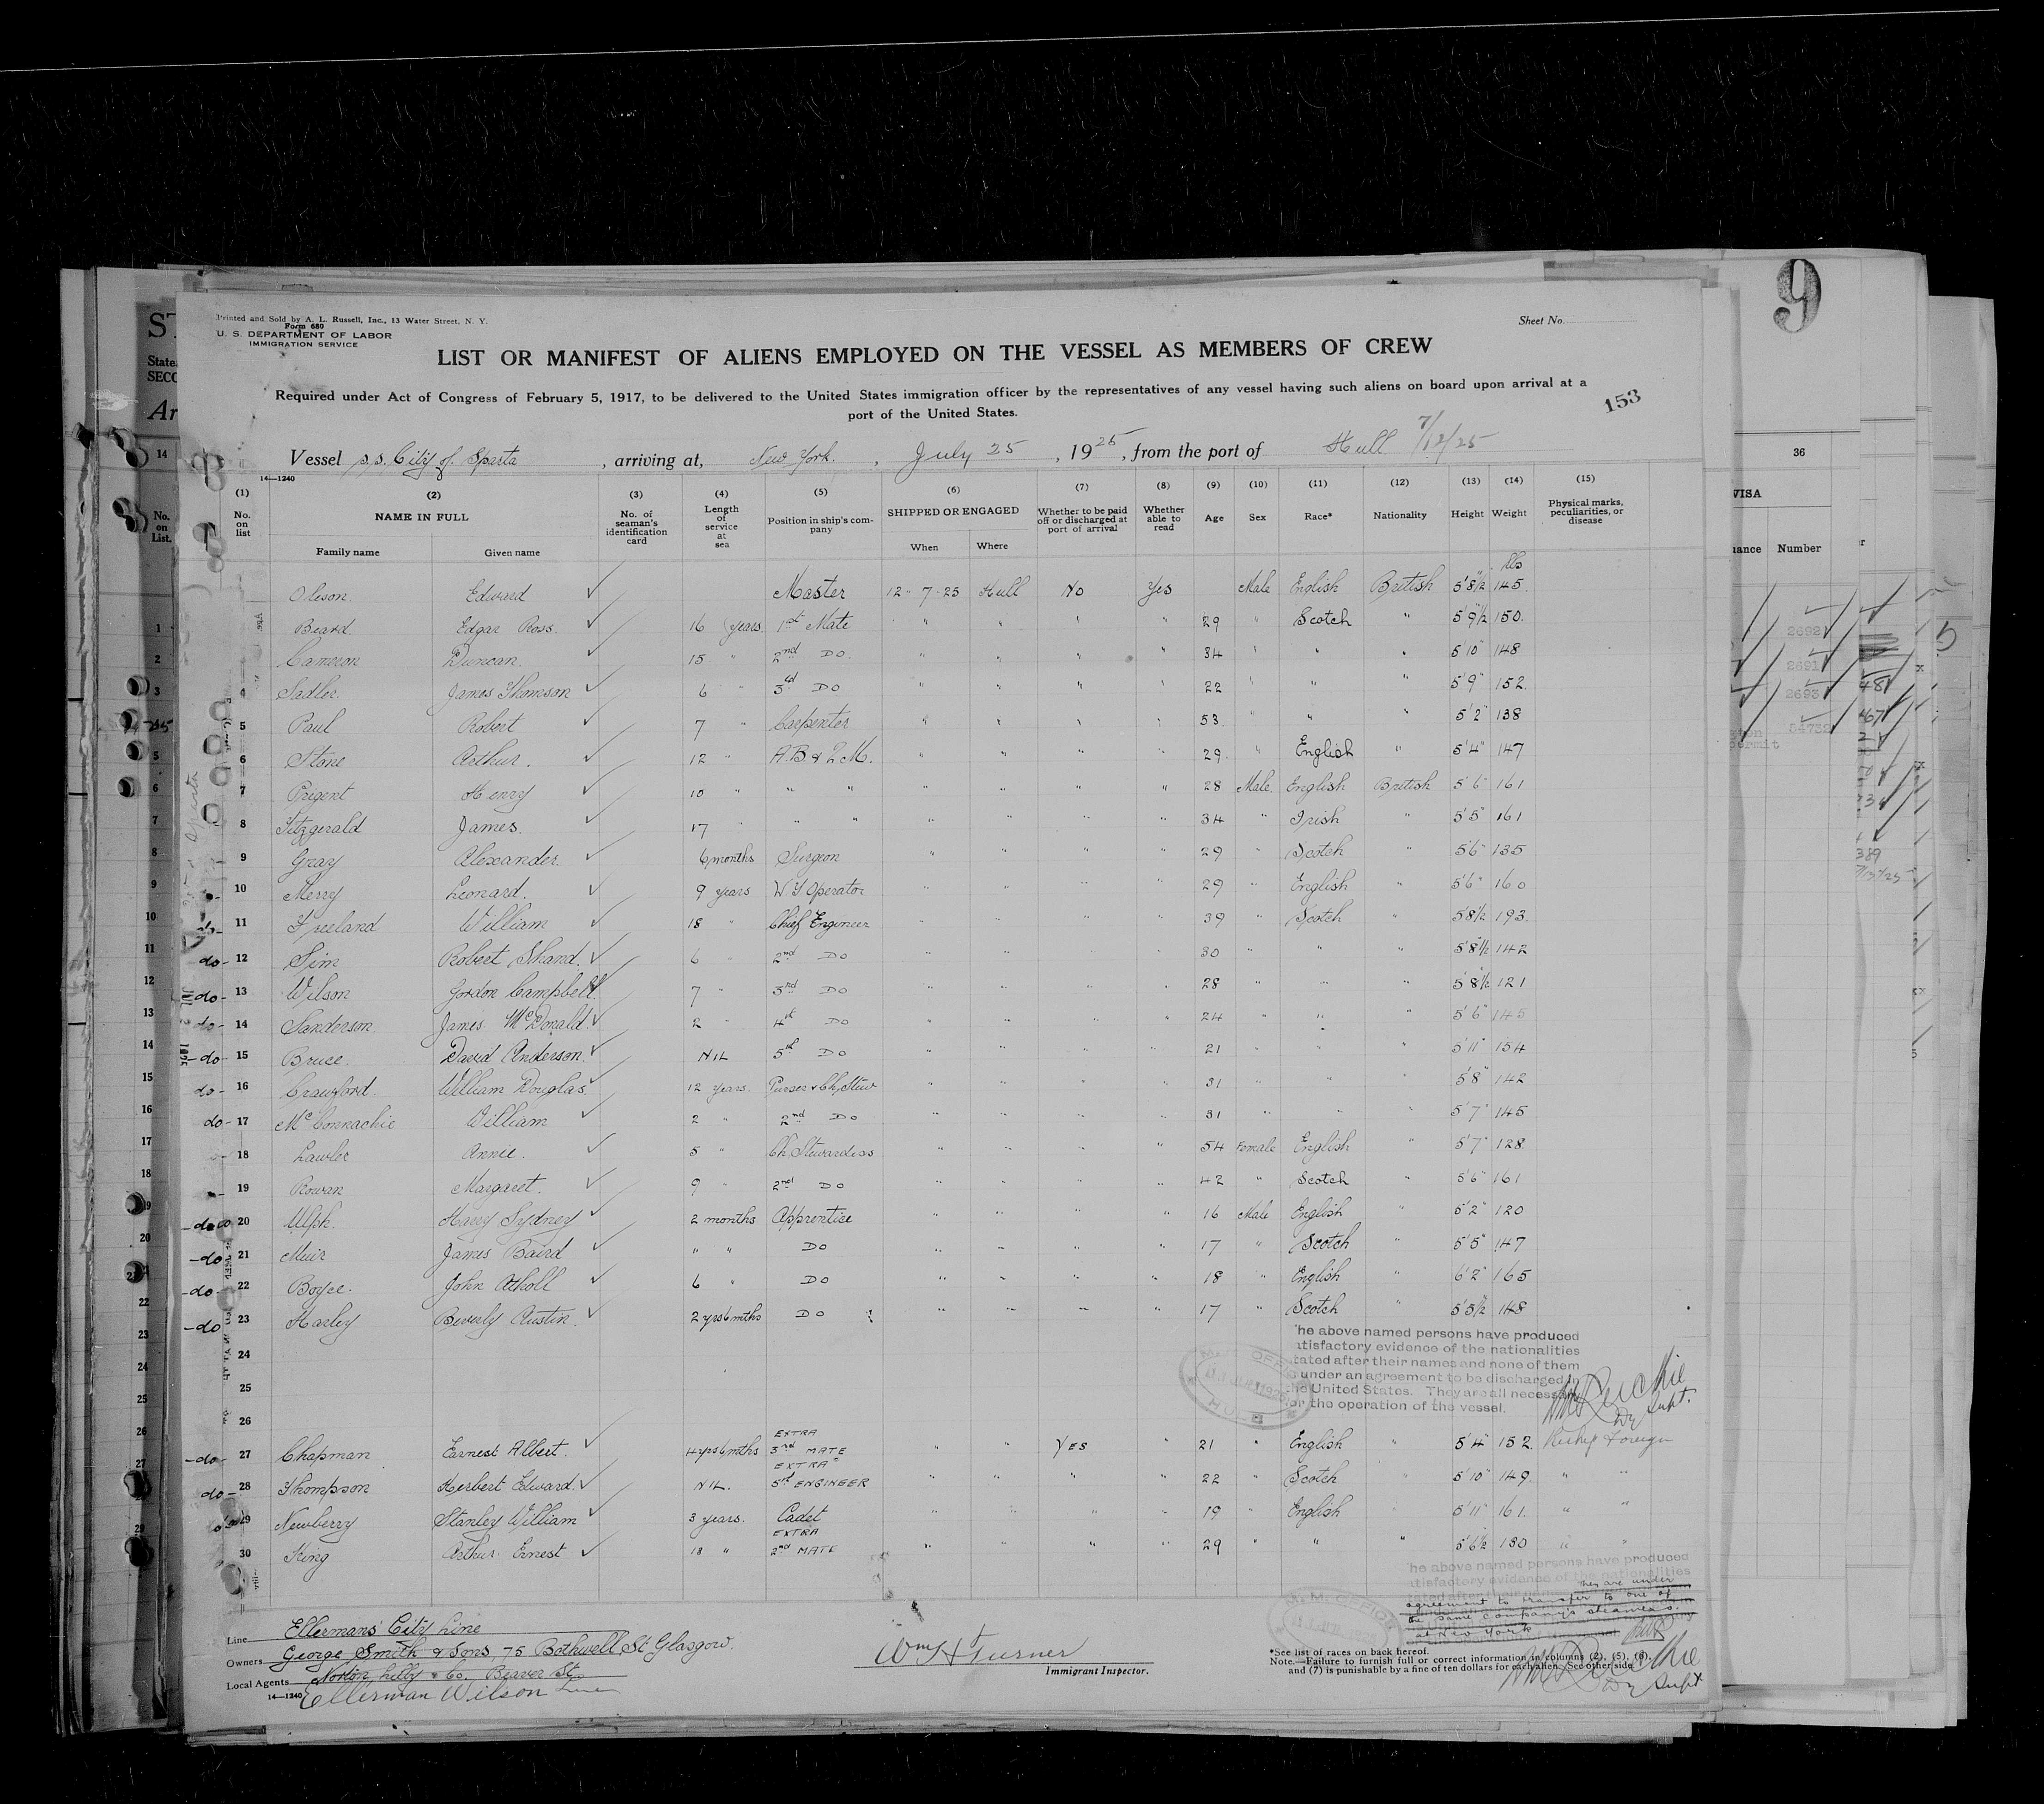 Printed and Sold by A. L. Russell, Inc., 13 Water Street, N. Y.
Form 680
U. S. DEPARTMENT OF LABOR
IMMIGRATION SERVICE
Sheet No.
9
LIST OR MANIFEST OF ALIENS EMPLOYED ON THE VESSEL AS MEMBERS OF CREW
Required under Act of Congress of February 5, 1917, to be delivered to the United States immigration officer by the representatives of any vessel having such aliens on board upon arrival at a
port of the United States.
153
Vessel s.s. City of Sparta, arriving at, New York, July 25, 1925, from the port of Hull 7/12/25
14—1240
(1) (2) (3) (4) (5) (6) (7) (8) (9) (10) (11) (12) (13) (14) (15)
No. on list NAME IN FULL No. of seaman's identification card Length of service at sea Position in ship's company SHIPPED OR ENGAGED Whether to be paid off or discharged at port of arrival Whether able to read Age Sex Race* Nationality Height Weight Physical marks, peculiarities, or disease
Family name Given name When Where
lbs
Olsson Edward Master 12-7-25 Hull No Yes Male English British 5'8½" 145
1 Beard Edgar Ross 16 years 1st Mate " " " " 29 " Scotch " 5'9½" 150
2 Cameron Duncan 15 " 2nd DO " " " " 34 " " " 5'10" 148
4 Sadler James Thomson 6 " 3rd DO " " " " 22 " " " 5'9" 152
5 Paul Robert 7 " Carpenter " " " " 53 " " " 5'2" 138
6 Stone Arthur 12 " A.B. & L.M. " " " " 29 " English " 5'4" 147
7 Prigent Henry 10 " " " " " " " 28 Male English British 5'6" 161
8 Fitzgerald James 17 " " " " " " " 34 " Irish " 5'5" 161
9 Gray Alexander 6 months Surgeon " " " " 29 " Scotch " 5'6" 135
10 Merry Leonard 9 years W/T Operator " " " " 29 " English " 5'6" 160
do- 11 Freeland William 18 " Chief Engineer " " " " 39 " Scotch " 5'8½" 193
do- 12 Sim Robert Shand 6 " 2nd DO " " " " 30 " " " 5'8½" 142
do- 13 Wilson Gordon Campbell 7 " 3rd DO " " " " 28 " " " 5'8½" 121
do- 14 Sanderson James McDonald 2 " 4th DO " " " " 24 " " " 5'6" 145
-do- 15 Bruce David Anderson NIL 5th DO " " " " 21 " " " 5'11" 154
do- 16 Crawford William Douglas 12 years Purser & Ch. Stew " " " " 31 " " " 5'8" 142
do- 17 McConnachie William 2 " 2nd DO " " " " 31 " " " 5'7" 145
18 Lawler Annie 5 " Ch. Stewardess " " " " 54 Female English " 5'7" 128
19 Rowan Margaret 9 " 2nd DO " " " " 42 " Scotch " 5'6" 161
-do- 20 Ulph Harry Sydney 2 months Apprentice " " " " 16 Male English " 5'2" 120
-do 21 Muir James Baird " " DO " " " " 17 " Scotch " 5'5" 147
-do- 22 Boyce John Atholl 6 " DO " " " " 18 " English " 6'2" 165
-do 23 Harley Beverly Austin 2 yrs 6 mths DO " " " " 17 " Scotch " 5'5½" 148
24
25
26
he above named persons have produced
atisfactory evidence of the nationalities
tated after their names and none of them
s under an agreement to be discharged in
the United States. They are all necessary
or the operation of the vessel.
Dy Supt.
-do- 27 Chapman Earnest Albert 4 yrs 6 mths EXTRA 3rd MATE " " YES " 21 " English " 5'4" 152
do- 28 Thompson Herbert Edward NIL. EXTRA 5th ENGINEER " " " " 22 " Scotch " 5'10" 149 " "
29 Newberry Stanley William 3 years. Cadet " " " " 19 " English 5'11" 161 " "
30 King Arthur Ernest 13 " EXTRA 2nd MATE " " " " 29 " " " 5'6½" 130 " "
he above named persons have produced
atisfactory evidence of the nationalities
They are under
agreement to transfer to one of
the same company's steamers
at New York
Line Ellermans City Line
Owners George Smith & Sons, 75 Bothwell St Glasgow.
Local Agents Norton Lilly & Co. Beaver St.
14—1240 Ellerman Wilson Line
Wm H Turner
Immigrant Inspector.
*See list of races on back hereof.
Note.—Failure to furnish full or correct information in columns (2), (5), (6),
and (7) is punishable by a fine of ten dollars for each alien. See other side
Dy Supt
36
VISA
Number
2692
2691
2693
54732
permit